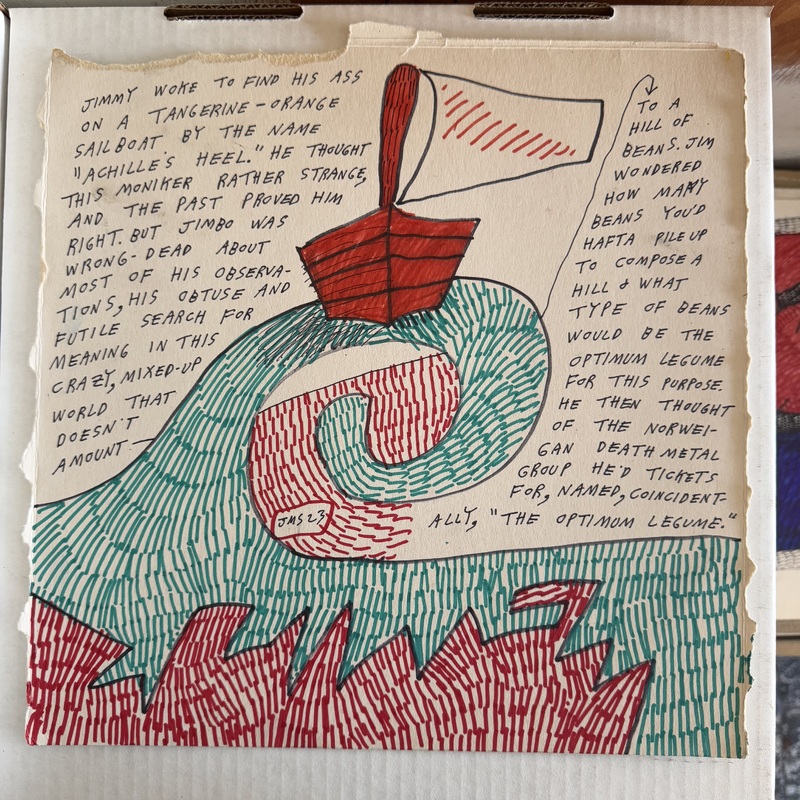 JIMMY WOKE TO FIND HIS ASS
ON A TANGERINE-ORANGE
SAILBOAT BY THE NAME
"ACHILLE'S HEEL." HE THOUGHT
THIS MONIKER RATHER STRANGE,
AND THE PAST PROVED HIM
RIGHT. BUT JIMBO WAS
WRONG-DEAD ABOUT
MOST OF HIS OBSERVA-
TIONS, HIS OBTUSE AND
FUTILE SEARCH FOR
MEANING IN THIS
CRAZY, MIXED-UP
WORLD THAT
DOESN'T
AMOUNT—
TO A
HILL OF
BEANS. JIM
WONDERED
HOW MANY
BEANS YOU'D
HAFTA PILE UP
TO COMPOSE A
HILL & WHAT
TYPE OF BEANS
WOULD BE THE
OPTIMUM LEGUME
FOR THIS PURPOSE.
HE THEN THOUGHT
OF THE NORWEI-
GAN DEATH METAL
GROUP HE'D TICKETS
FOR, NAMED, COINCIDENT-
ALLY, "THE OPTIMUM LEGUME."
JMS 23